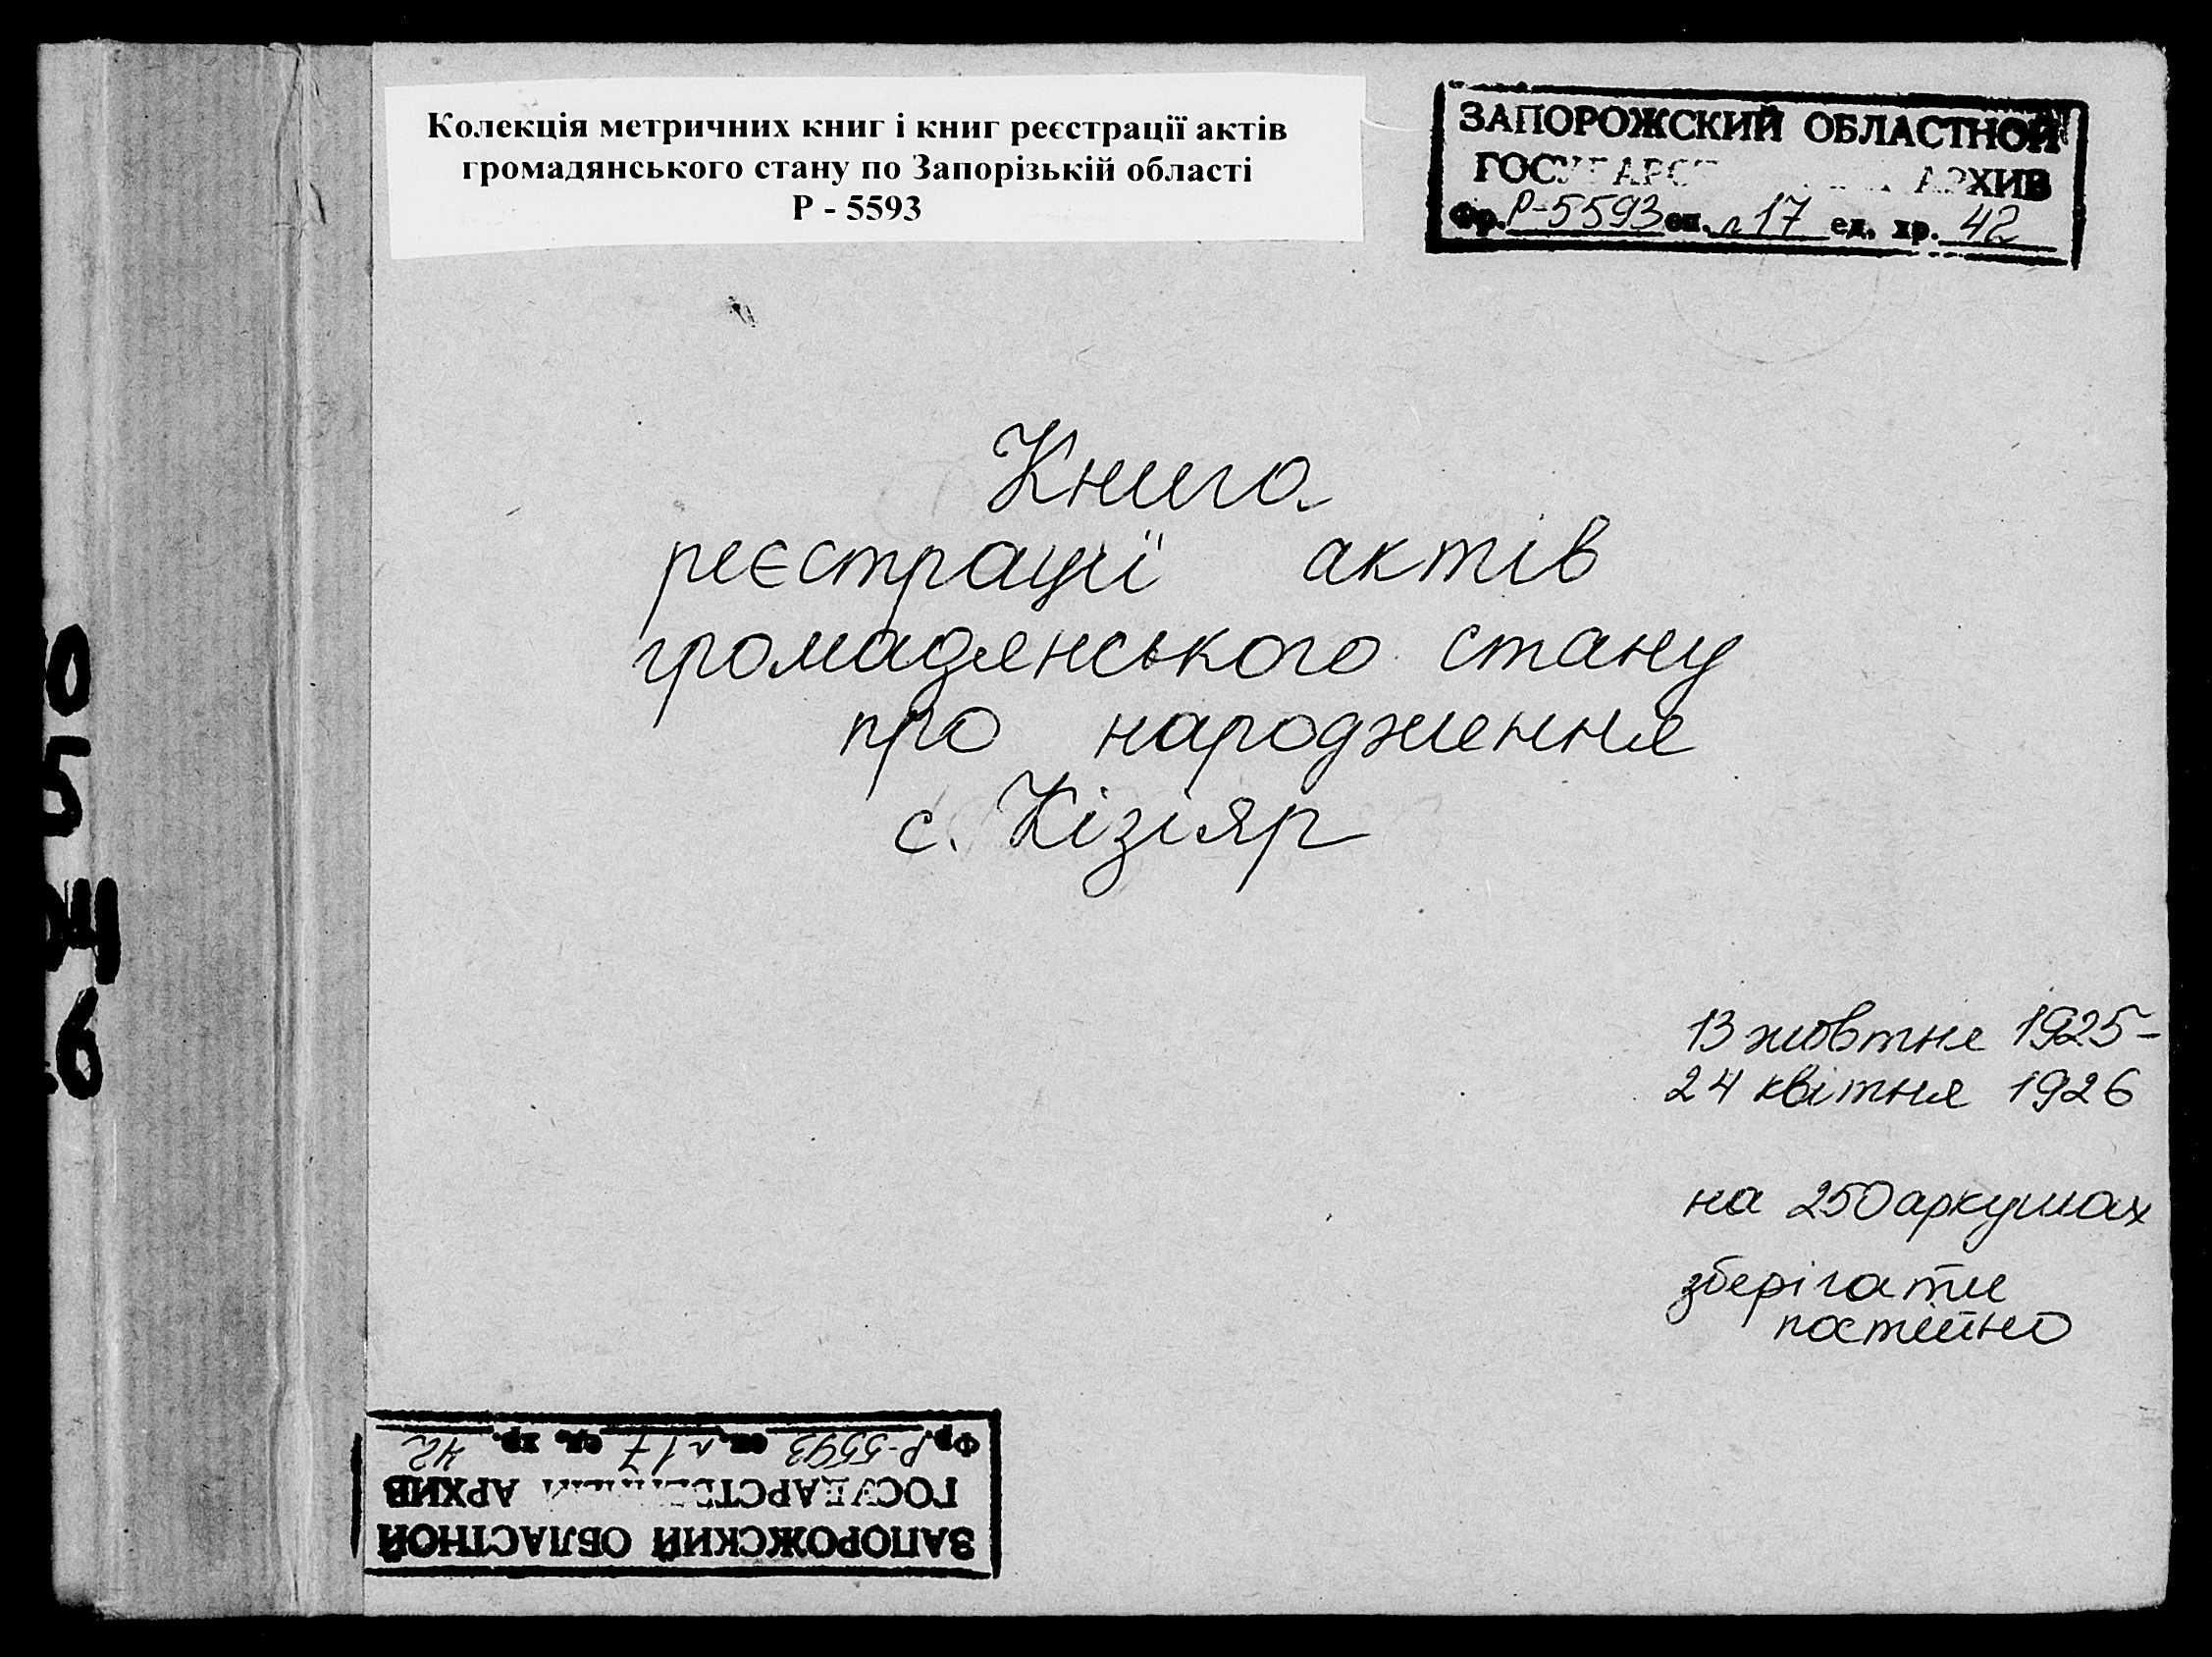 Колекція метричних книг і книг реєстрації актів
громадянського стану по Запорізькій області
Р - 5593
ЗАПОРОЖСКИЙ ОБЛАСТНОЙ
АРХИВ
Фр. Р-5593 оп. л17 ед. хр. 42
Книга
реєстрації актів
громадянського стану
про народження
с. Кізіяр
13 жовтня 1925-
24 квітня 1926
на 250 аркушах
зберігати
постійно
ЗАПОРОЖСКИЙ ОБЛАСТНОЙ
ГОСУДАРСТВЕННЫЙ АРХИВ
Фр. Р-5593 оп. л17 ед. хр. 42